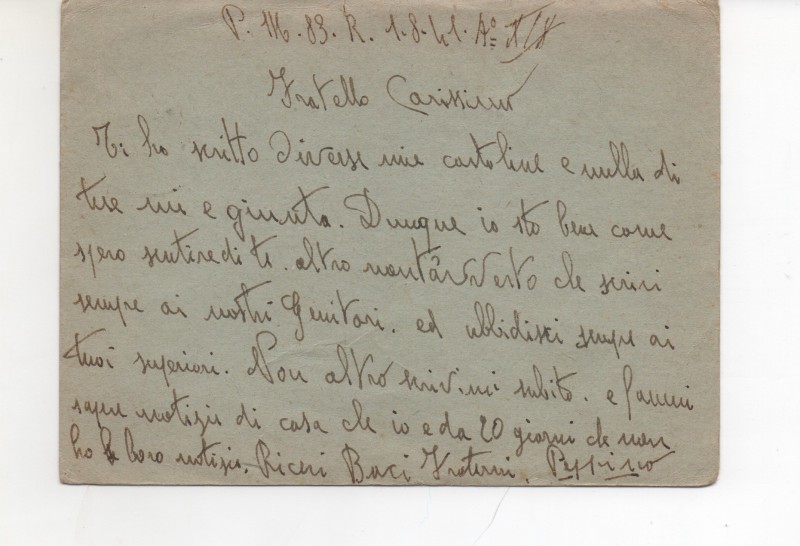 P. M. 83. R. 1.8.41. Aº XIX
Fratello Carissimo
Ti ho scritto diverse mie cartoline e nulla di
tue mi e giunta. Dunque io sto bene come
spero sentire di te. altro non t'avverto che scrivi
sempre ai nostri Genitori. ed ubbidisci sempre ai
tuoi superiori. Non altro scrivimi subito. e fammi
sapere notizie di casa che io e da 20 giorni che non
ho loro notizie. Ricevi Baci Fraterni, Peppino